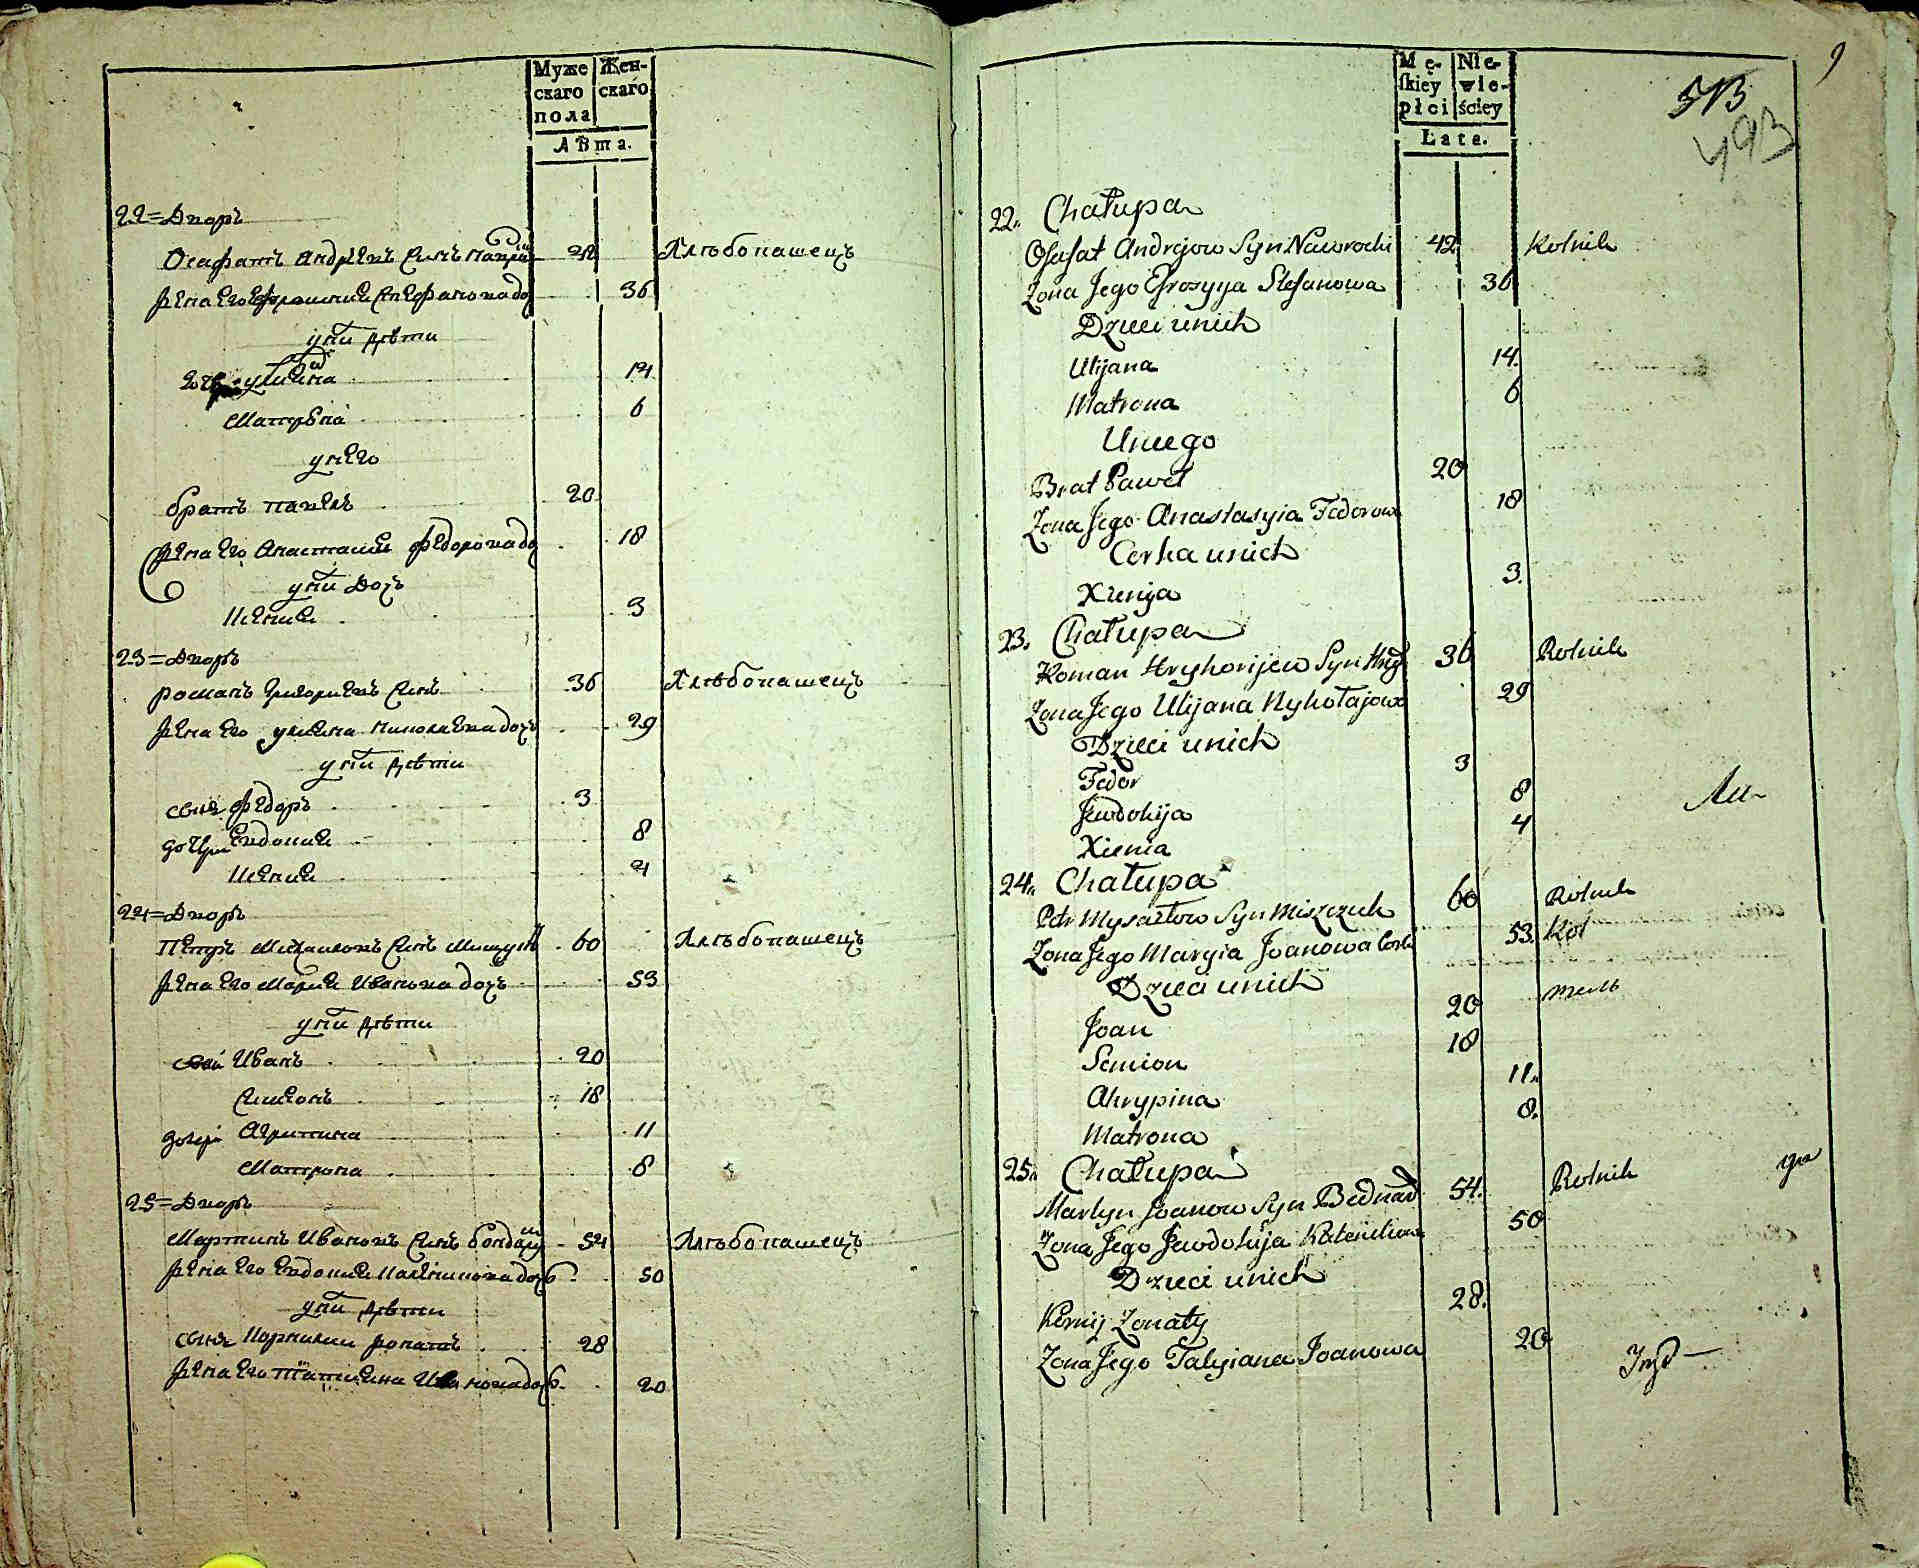 Муже
скаго
пола
Жен-
скаго
Лѣта.
22=Дворъ
Осафатъ Андрѣевъ Синъ 42 Хлѣбопашецъ
жена его Ефросиния Стефанова до 36
у них дѣти
Улияна 14
Матрена 6
у него
братъ павелъ 20
жена его Анастасия федорова до 18
у них дочъ
Ксения 3
23=Дворъ
романъ Григориевъ Синъ 36 Хлѣбопашецъ
жена его улияна николаева дочъ 29
у них дѣти
федоръ 3
дочери Евдокия 8
Ксения 4
24=Дворъ
Петръ Михаиловъ Синъ Мищукъ 60 Хлѣбопашецъ
жена его Мария Иванова дочъ 53
у них дѣти
Иванъ 20
Симионъ 18
дочери Агрипина 11
Матрона 8
25=Дворъ
Мартинъ Ивановъ Синъ бондар 54 Хлѣбопашецъ
жена его Евдокия дочъ 50
у них дѣти
жонатъ 28
жена его татияна Иванова дочъ 20
9
513
493
Mę-
ſkiey
płci
Nie-
wie-
ściey
Lata.
22. Chałupa
Osafat Andrejow Syn Nawrocki 42 Rolnik
Zona Jego Efrozyja Stefanowa 36
Dzieci unich
Ulijana 14.
Matrona 6
Uniego
Brat Paweł 20
Zona Jego Anastasyia Fedorowa 18
Corka unich
Xienija 3.
23. Chałupa
Roman Hryhorijew Syn 36 Rolnik
Zona Jego Ulijana Nykołajowa 29
Dzieci unich
Fedor 3
Jewdokija 8
Xienia 4
24. Chałupa
Petr Mysaiłow Syn Miszczuk 60 Rolnik
Zona Jego Maryia Joanowa Cork 53. Rol
Dzieci unich
Joan 20
Semion 18
Ahrypina 11.
Matrona 8.
25. Chałupa
Martyn Joanow Syn Bednar 54. Rolnik
Zona Jego Jewdokija 50
Dzieci unich
Zonaty 28.
Zona Jego Tatyiana Joanowa 20